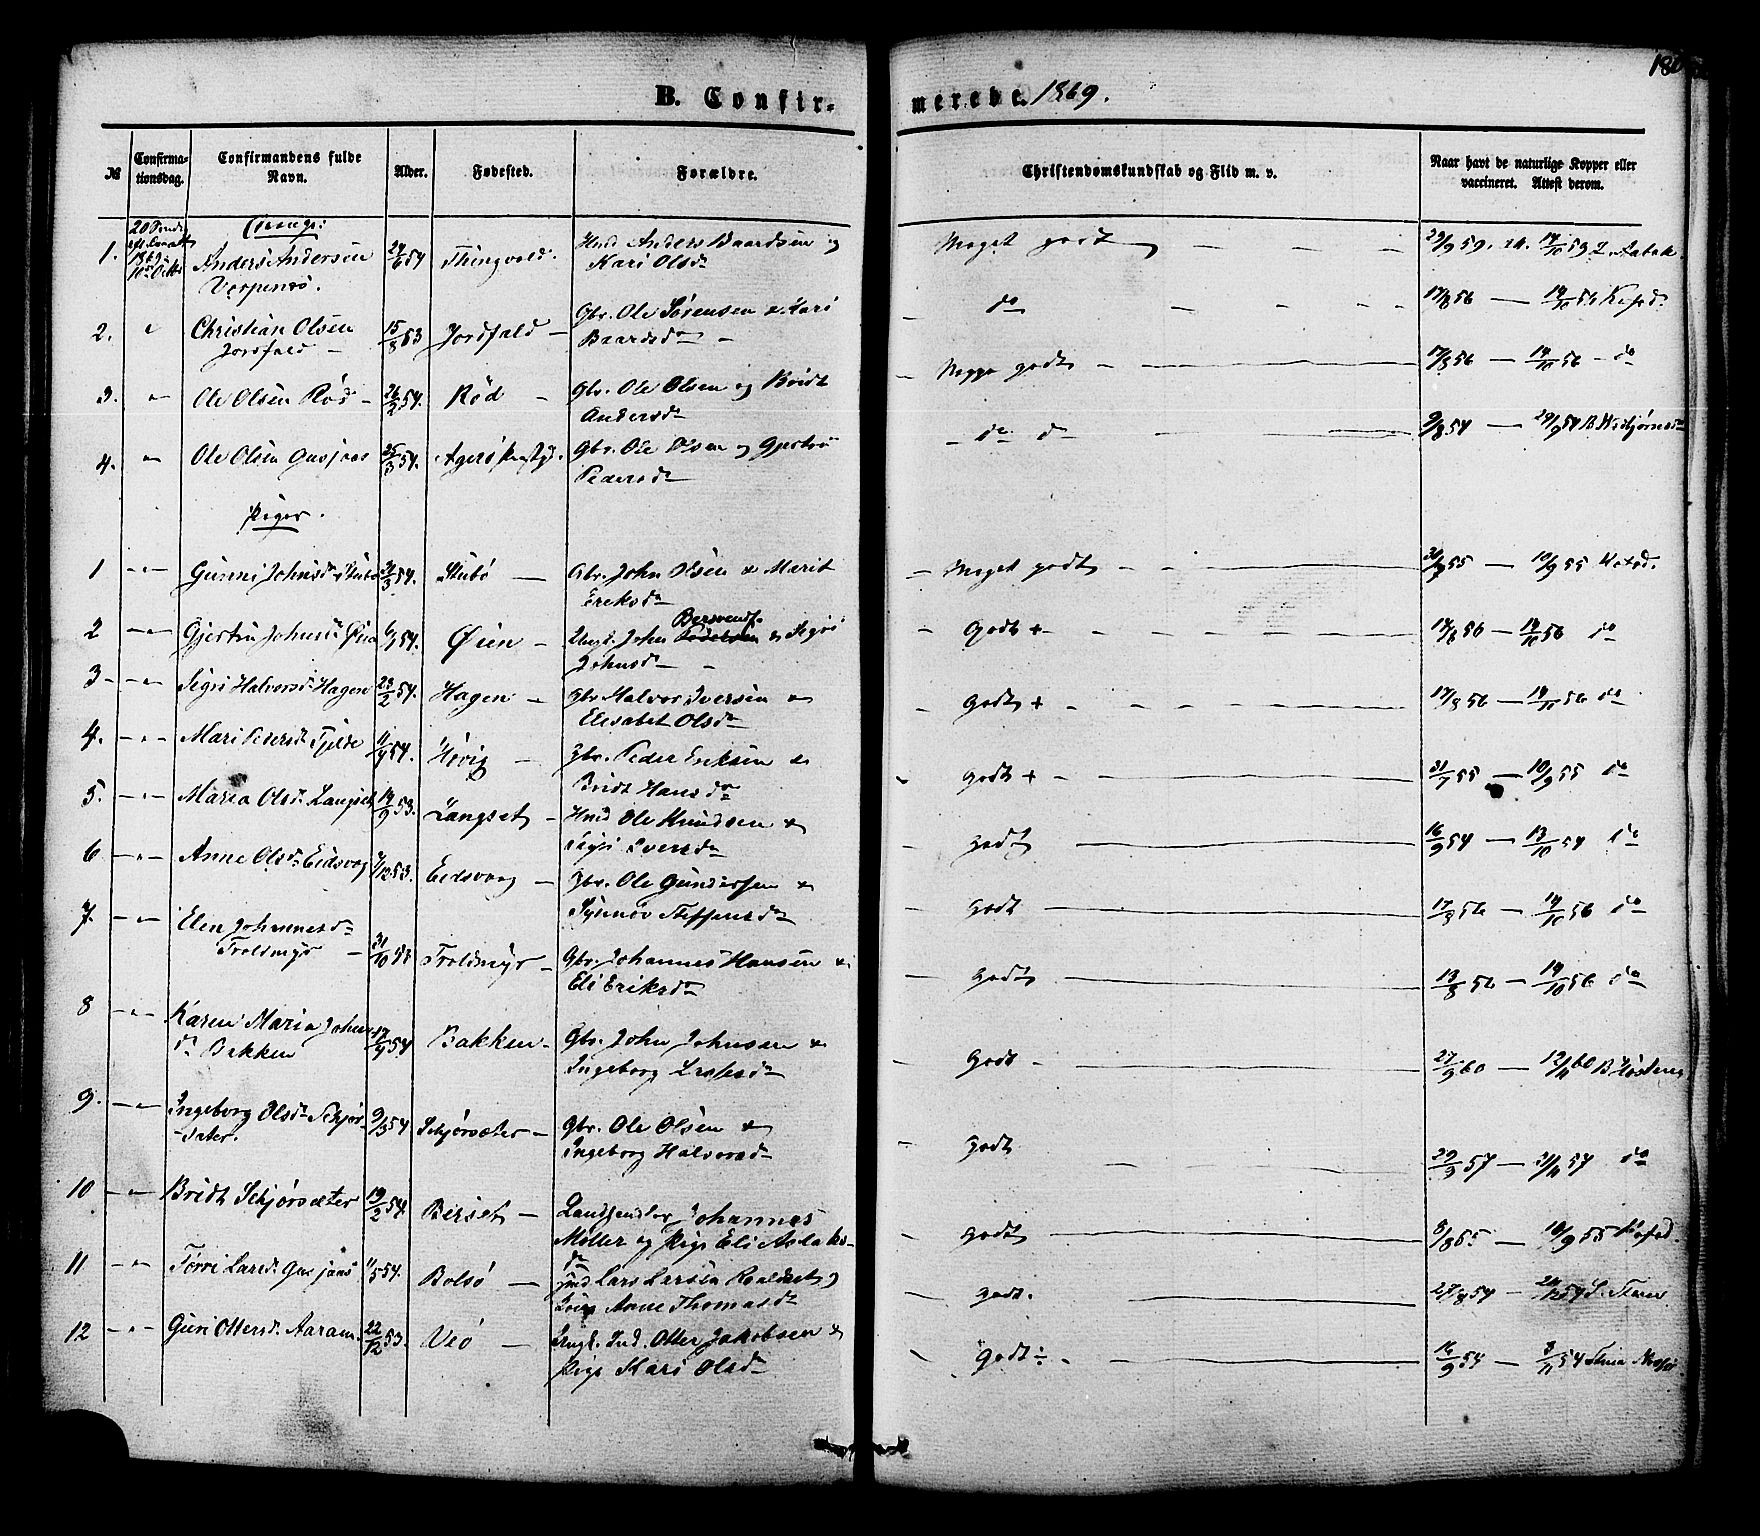 B. Confirmerede. 1869.
№ Confirmationsdag. Confirmandens fulde Navn. Alder. Fødested. Forældre. Christendomskundskab og Flid m. v. Naar havt de naturlige Kopper eller vaccineret. Attest derom.
1. Anders Andersen 54 Thingvold. Anders Baardsen og
Kari Olsd Meget godt
2. Christian Olsen 15/8 53 Jordfald – Gbr. Ole Sørensen & Kari
Jordfald – Baardsd do 17/8 56 — 14/10 56
3. Ole Olsen Rød – 26/2 54. Rød – Gbr. Ole Olsen og Bridt
Andersd godt 17/8 56 — 14/10 56 – do
4. Ole Olsen Gusjaas 25/3 54. Gbr. Ole Olsen og Gjertru
Pedersd do do 9/8 54 — 29/9 54
Piger.
1 Gunni Johnsd Stubø 54. Stubø — Gbr. John Olsen & Marit
Ereksd Meget godt 55 — 10/9 55
2 Gjertru Johnsd Øien 54. Øien – John Bersvends. & Sigri
Johnsd Godt + 56 — 14/10 56 do
3 Sigri Halvorsd. Hagen 23/2 54. Hagen – Gbr. Halvor Iversen &
Elisabet Olsd Godt + 17/8 56 — 14/10 56 do
4. Mari Pedersd. Tjelde 54. Høvig — Gbr. Peder Eriksen &
Bridt Hansd Godt + 31/7 55 — 10/9 55 do
5. Maria Olsd. Langset 14/9 53. Langset – Ole Knudsen &
Sigri Iversd godt 16/9 54 — 13/10 54 do
6 Anne Olsd. Eidsvog 53. Eidsvaag — Gbr. Ole Gundersen &
Synnøv Steffensd Godt 17/8 56 — 14/10 56 do
7. Elen Johannesd
Troldmyr – 31/10 53 Troldmyr – Gbr. Johannes Hansen &
Eli Eriksd Godt 13/8 56 — 14/10 56 do
8 Karen Maria Johns
d Bakken 54 Bakken – Gbr. John Johnsen &
Ingeborg Godt – 27/9 60 — 60
9. Ingeborg Olsd Schjør-
sæter. 9/3 54 Schjørsæter – Gbr. Ole Olsen &
Ingeborg Halvorsd godt 29/9 57 — 57 do
10 Bridt Schjørsæter 19/2 54 Berset – Landhandler Johannes
Møller og Pige Eli Aslaks-
d godt 55 — 10/9 55
11 Larsd. Gusjaas 54. Bolsø — Lars Larsen og
Anne Thomasd godt. 27/8 54 — 54
12 Guri Ottersd. Aaram. 22/12 53. Veø — Ungk. Ind. Otter Jakobsen &
Pige Kari Olsd Godt ÷ 16/9 54 — 54